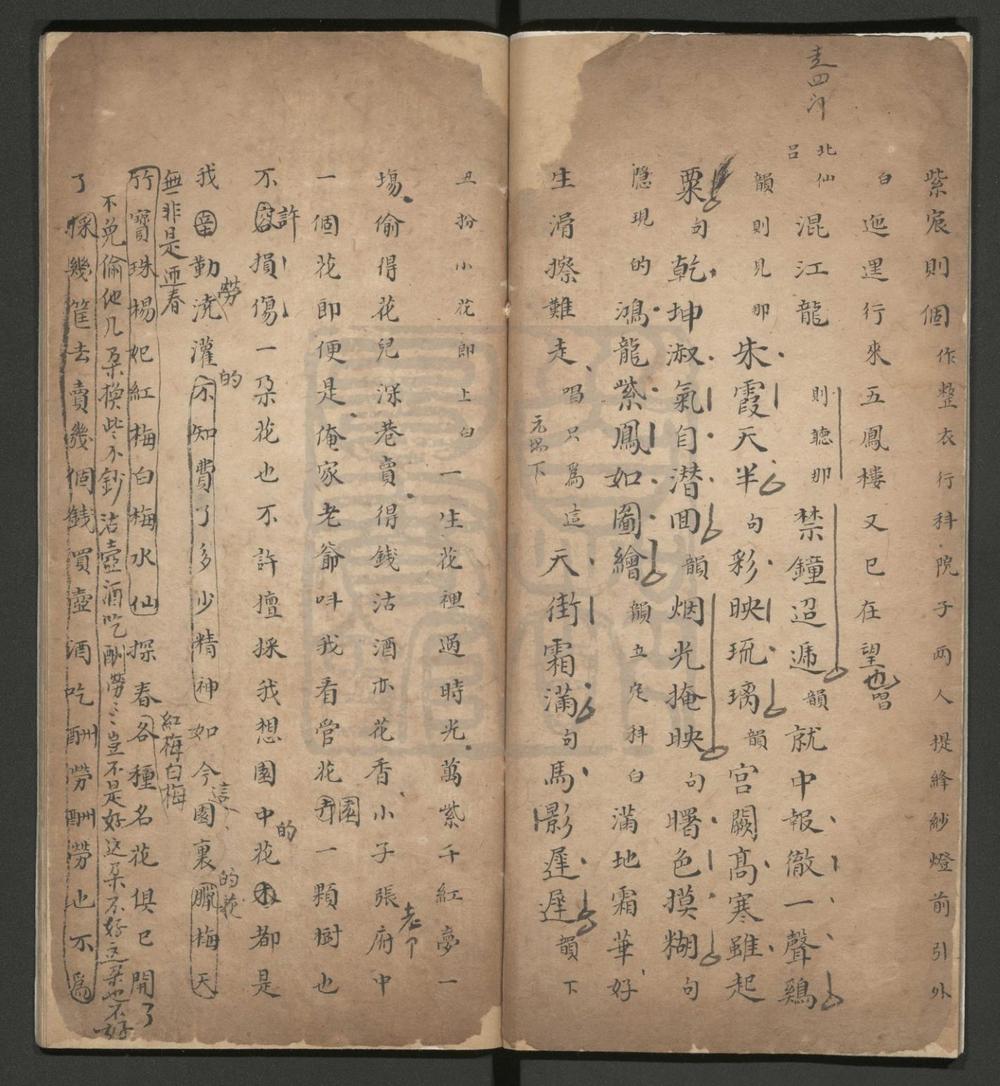 走四门
紫宸則個作整衣行科院子两人提絳紗燈前引外
白迤邐行來五鳳樓又已在望也唱
北仙吕混江龍則聽那禁鐘迢遞韻就中報徹一聲鷄
韻則見那朱霞天半句彩映琉璃韻宮闕髙寒雖起
粟句乾坤淑氣自潜囬韻烟光掩映句曙色摸糊句
隱現的鴻龍紫鳳如圖繪韻立定科白滿地霜華好
生滑擦難走唱只為這天街霜滿句馬影遲遲韻下
丑扮小花郎上白一生花裡過時光萬紫千紅夢一
場偷得花兒深巷賣得錢沽酒亦花香小子張府中
一個花郎便是俺家老爺呌我看管花園一顆樹也
不許損傷一朶花也不許擅採我想園中的花都是
我辛勤澆灌的不知費了多少精神如今這園裏的花臘梅天
無非是迎春紅梅白梅
竹寳珠楊妃紅梅白梅水仙探春各種名花俱已開了
不免偷他几朶換些小鈔沽壺酒吃酧勞〻豈不是好這朶不好这朶也不好
了採幾筐去賣幾個錢買壺酒吃酧勞酧勞也不為